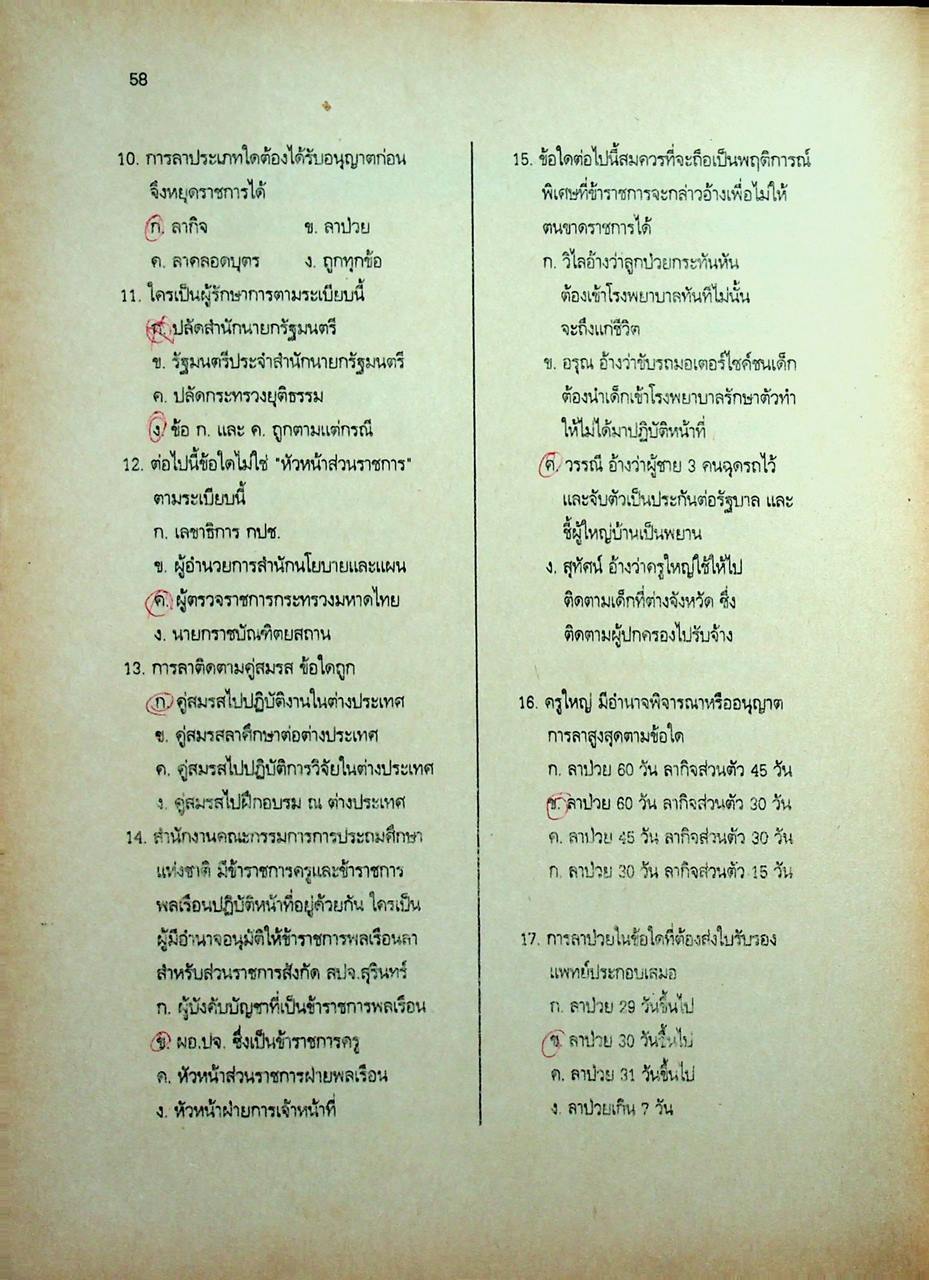 58
10. การลาประเภทใดต้องได้รับอนุญาตก่อน
จึงหยุดราชการได้
ก. ลากิจ ข. ลาป่วย
ค. ลาคลอดบุตร ง. ถูกทุกข้อ
11. ใครเป็นผู้รักษาการตามระเบียบนี้
ก. ปลัดสำนักนายกรัฐมนตรี
ข. รัฐมนตรีประจำสำนักนายกรัฐมนตรี
ค. ปลัดกระทรวงยุติธรรม
ง. ข้อ ก. และ ค. ถูกตามแต่กรณี
12. ต่อไปนี้ข้อใดไม่ใช่ "หัวหน้าส่วนราชการ"
ตามระเบียบนี้
ก. เลขาธิการ กปช.
ข. ผู้อำนวยการสำนักนโยบายและแผน
ค. ผู้ตรวจราชการกระทรวงมหาดไทย
ง. นายกราชบัณฑิตยสถาน
13. การลาติดตามคู่สมรส ข้อใดถูก
ก. คู่สมรสไปปฏิบัติงานในต่างประเทศ
ข. คู่สมรสลาศึกษาต่อต่างประเทศ
ค. คู่สมรสไปปฏิบัติการวิจัยในต่างประเทศ
ง. คู่สมรสไปฝึกอบรม ณ ต่างประเทศ
14. สำนักงานคณะกรรมการการประถมศึกษา
แห่งชาติ มีข้าราชการครูและข้าราชการ
พลเรือนปฏิบัติหน้าที่อยู่ด้วยกัน ใครเป็น
ผู้มีอำนาจอนุมัติให้ข้าราชการพลเรือนลา
สำหรับส่วนราชการสังกัด สปจ.สุรินทร์
ก. ผู้บังคับบัญชาที่เป็นข้าราชการพลเรือน
ข. ผอ.ปจ. ซึ่งเป็นข้าราชการครู
ค. หัวหน้าส่วนราชการฝ่ายพลเรือน
ง. หัวหน้าฝ่ายการเจ้าหน้าที่
15. ข้อใดต่อไปนี้สมควรที่จะถือเป็นพฤติการณ์
พิเศษที่ข้าราชการจะกล่าวอ้างเพื่อไม่ให้
ตนขาดราชการได้
ก. วิไลอ้างว่าลูกป่วยกระทันหัน
ต้องเข้าโรงพยาบาลทันทีไม่นั้น
จะถึงแก่ชีวิต
ข. อรุณ อ้างว่าขับรถมอเตอร์ไซค์ชนเด็ก
ต้องนำเด็กเข้าโรงพยาบาลรักษาตัวทำ
ให้ไม่ได้มาปฏิบัติหน้าที่
ค. วรรณี อ้างว่าผู้ชาย 3 คนฉุดรถไว้
และจับตัวเป็นประกันต่อรัฐบาล และ
ชี้ผู้ใหญ่บ้านเป็นพยาน
ง. สุทัศน์ อ้างว่าครูใหญ่ใช้ให้ไป
ติดตามเด็กที่ต่างจังหวัด ซึ่ง
ติดตามผู้ปกครองไปรับจ้าง
16. ครูใหญ่ มีอำนาจพิจารณาหรืออนุญาต
การลาสูงสุดตามข้อใด
ก. ลาป่วย 60 วัน ลากิจส่วนตัว 45 วัน
ข. ลาป่วย 60 วัน ลากิจส่วนตัว 30 วัน
ค. ลาป่วย 45 วัน ลากิจส่วนตัว 30 วัน
ก. ลาป่วย 30 วัน ลากิจส่วนตัว 15 วัน
17. การลาป่วยในข้อใดที่ต้องส่งใบรับรอง
แพทย์ประกอบเสมอ
ก. ลาป่วย 29 วันขึ้นไป
ข. ลาป่วย 30 วันขึ้นไป
ค. ลาป่วย 31 วันขึ้นไป
ง. ลาป่วยเกิน 7 วัน